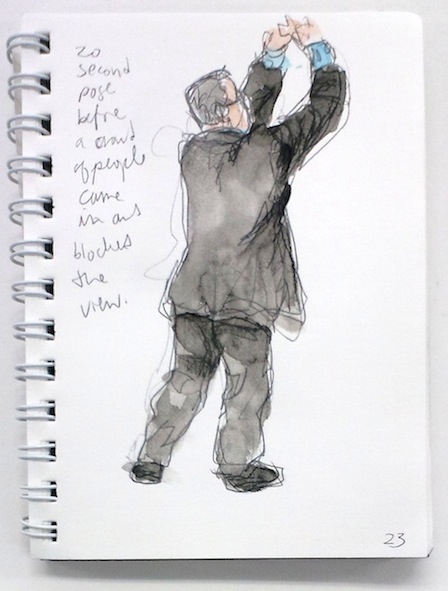 20
second
pose
before
a crowd
of people
came
in and
blocked
the
view.
23